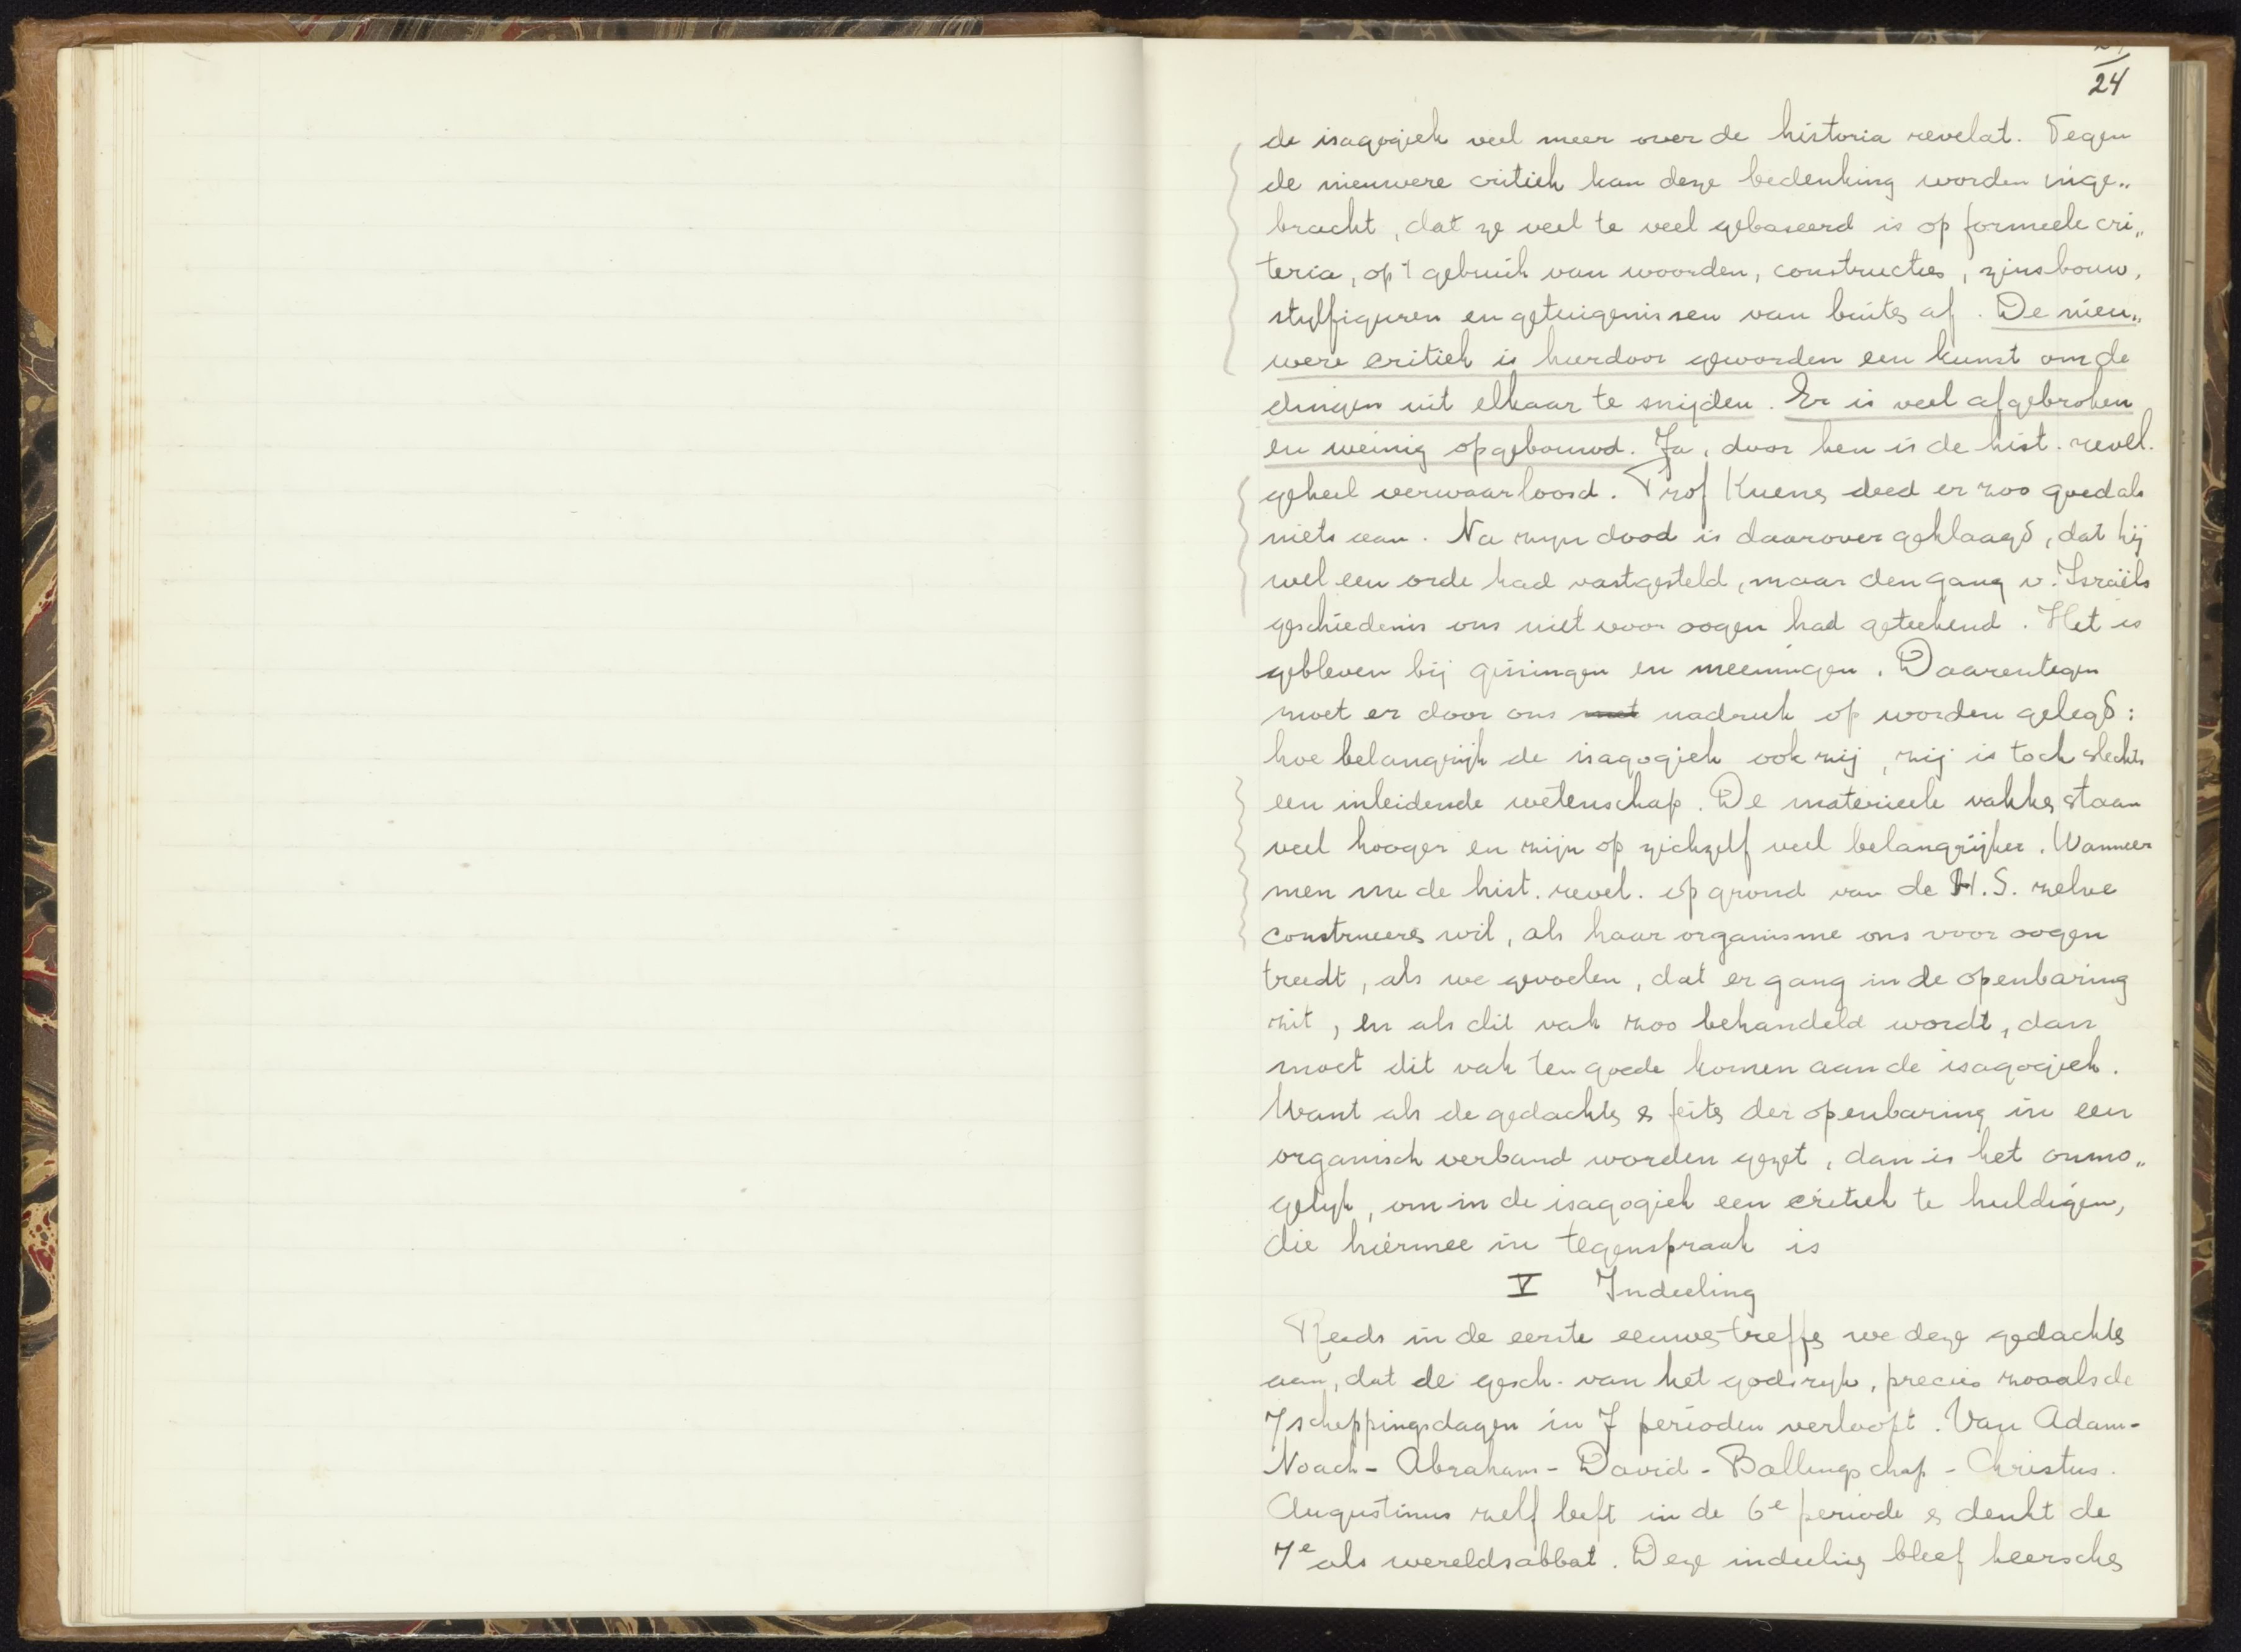 24
de isagogiek veel meer over de historia revelat. Tegen
de nieuwere critiek kan deze bedenking worden inge„
bracht, dat ze veel te veel gebaseerd is op formeele cri„
teria, op 't gebruik van woorden, constructies, zinsbouw,
stylfiguren en getuigenissen van buiten af. De nieu„
were critiek is hierdoor geworden een kunst om de
dingen uit elkaar te snijden. Er is veel afgebroken
en weinig opgebouwd. Ja, door hen is de hist. revel.
geheel verwaarloosd. Prof Kuenen deed er zoo goed als
niets aan. Na zijn dood is daarover geklaagd, dat hij
wel een orde had vastgesteld, maar den gang v. Israëls
geschiedenis ons niet voor oogen had geteekend. Het is
gebleven bij gissingen en meeningen. Daarentegen
moet er door ons met nadruk op worden gelegd:
hoe belangrijk de isagogiek ook zij, zij is toch slechts
een inleidende wetenschap. De materieele vakken staan
veel hooger en zijn op zichzelf veel belangrijker. Wanneer
men nu de hist. revel. op grond van de H.S. zelve
construeeren wil, als haar organisme ons voor oogen
treedt, als we gevoelen, dat er gang in de openbaring
zit, en als dit vak zoo behandeld wordt, dan
moet dit vak ten goede komen aan de isagogiek.
Want als de gedachten en feiten der openbaring in een
organisch verband worden gezet, dan is het onmo„
gelyk, om in de isagogiek een critiek te huldigen,
die hiermee in tegenspraak is
V Indeeling
Reeds in de eerste eeuwen treffen we deze gedachten
aan, dat de gesch. van het godsryk, precies zooals de
7 scheppingsdagen in 7 perioden verloopt. Van Adam-
Noach - Abraham - David - Ballingschap - Christus.
Augustinus zelf leeft in de 6e periode en denkt de
7e als wereldsabbat. Deze indeeling bleef heerschen